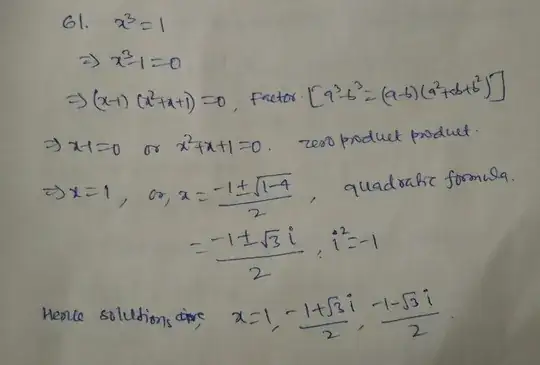 61. x³ = 1
⇒ x³-1 = 0
⇒ (x-1) (x²+x+1) = 0, Factor [a³-b³ = (a-b)(a²+ab+b²)]
⇒ x-1=0 or x²+x+1=0. zero product product.
⇒ x=1, or, x = (-1±√(1-4))/2, quadratic formula.
= (-1±√3 i)/2, i²=-1
Hence solutions are, x=1, (-1+√3 i)/2, (-1-√3 i)/2.